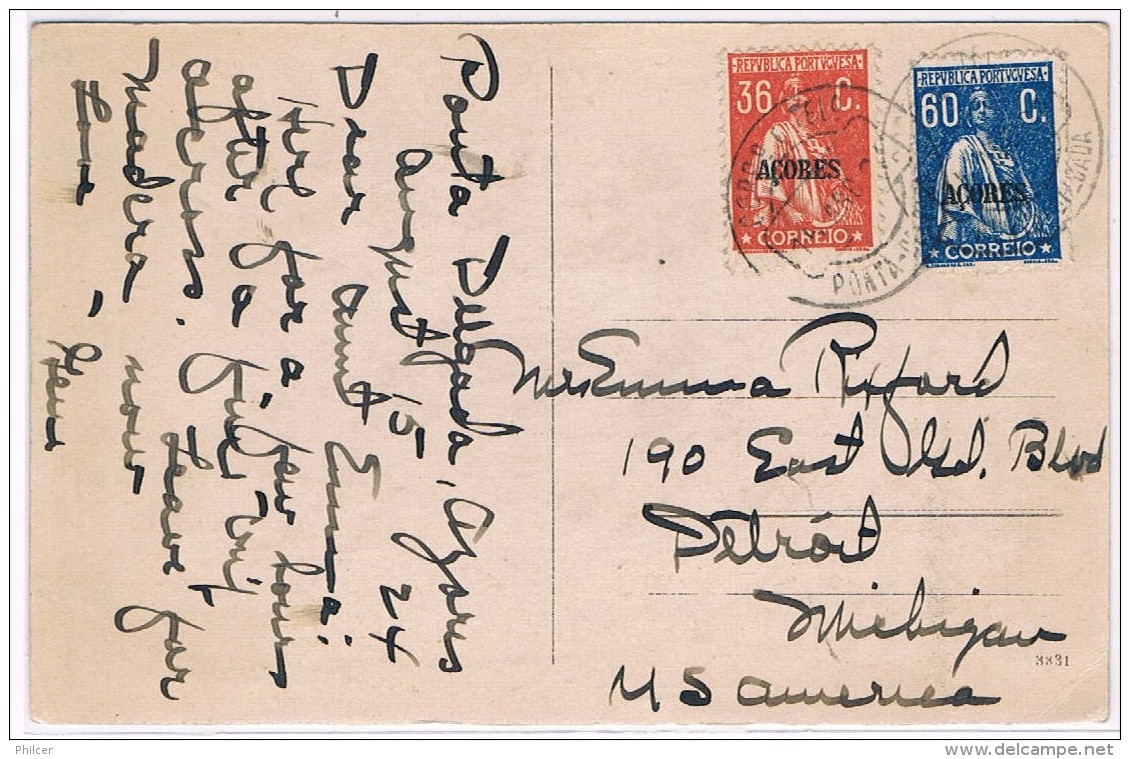 Ponta Delgada, Azores
August 15 24
Dear Aunt Emma:
Here for a few hours
after a fine trip
across. Leave for
Madera now
Love -
REPVBLICA PORTVGVESA
36 C.
AÇORES
CORREIO
REPVBLICA PORTVGVESA
60 C.
AÇORES
CORREIO
PONTA-
Mrs Emma Rixford
190 East Gd. Blvd
Detroit
Michigan
U S America
3331
Philcer
www.delcampe.net